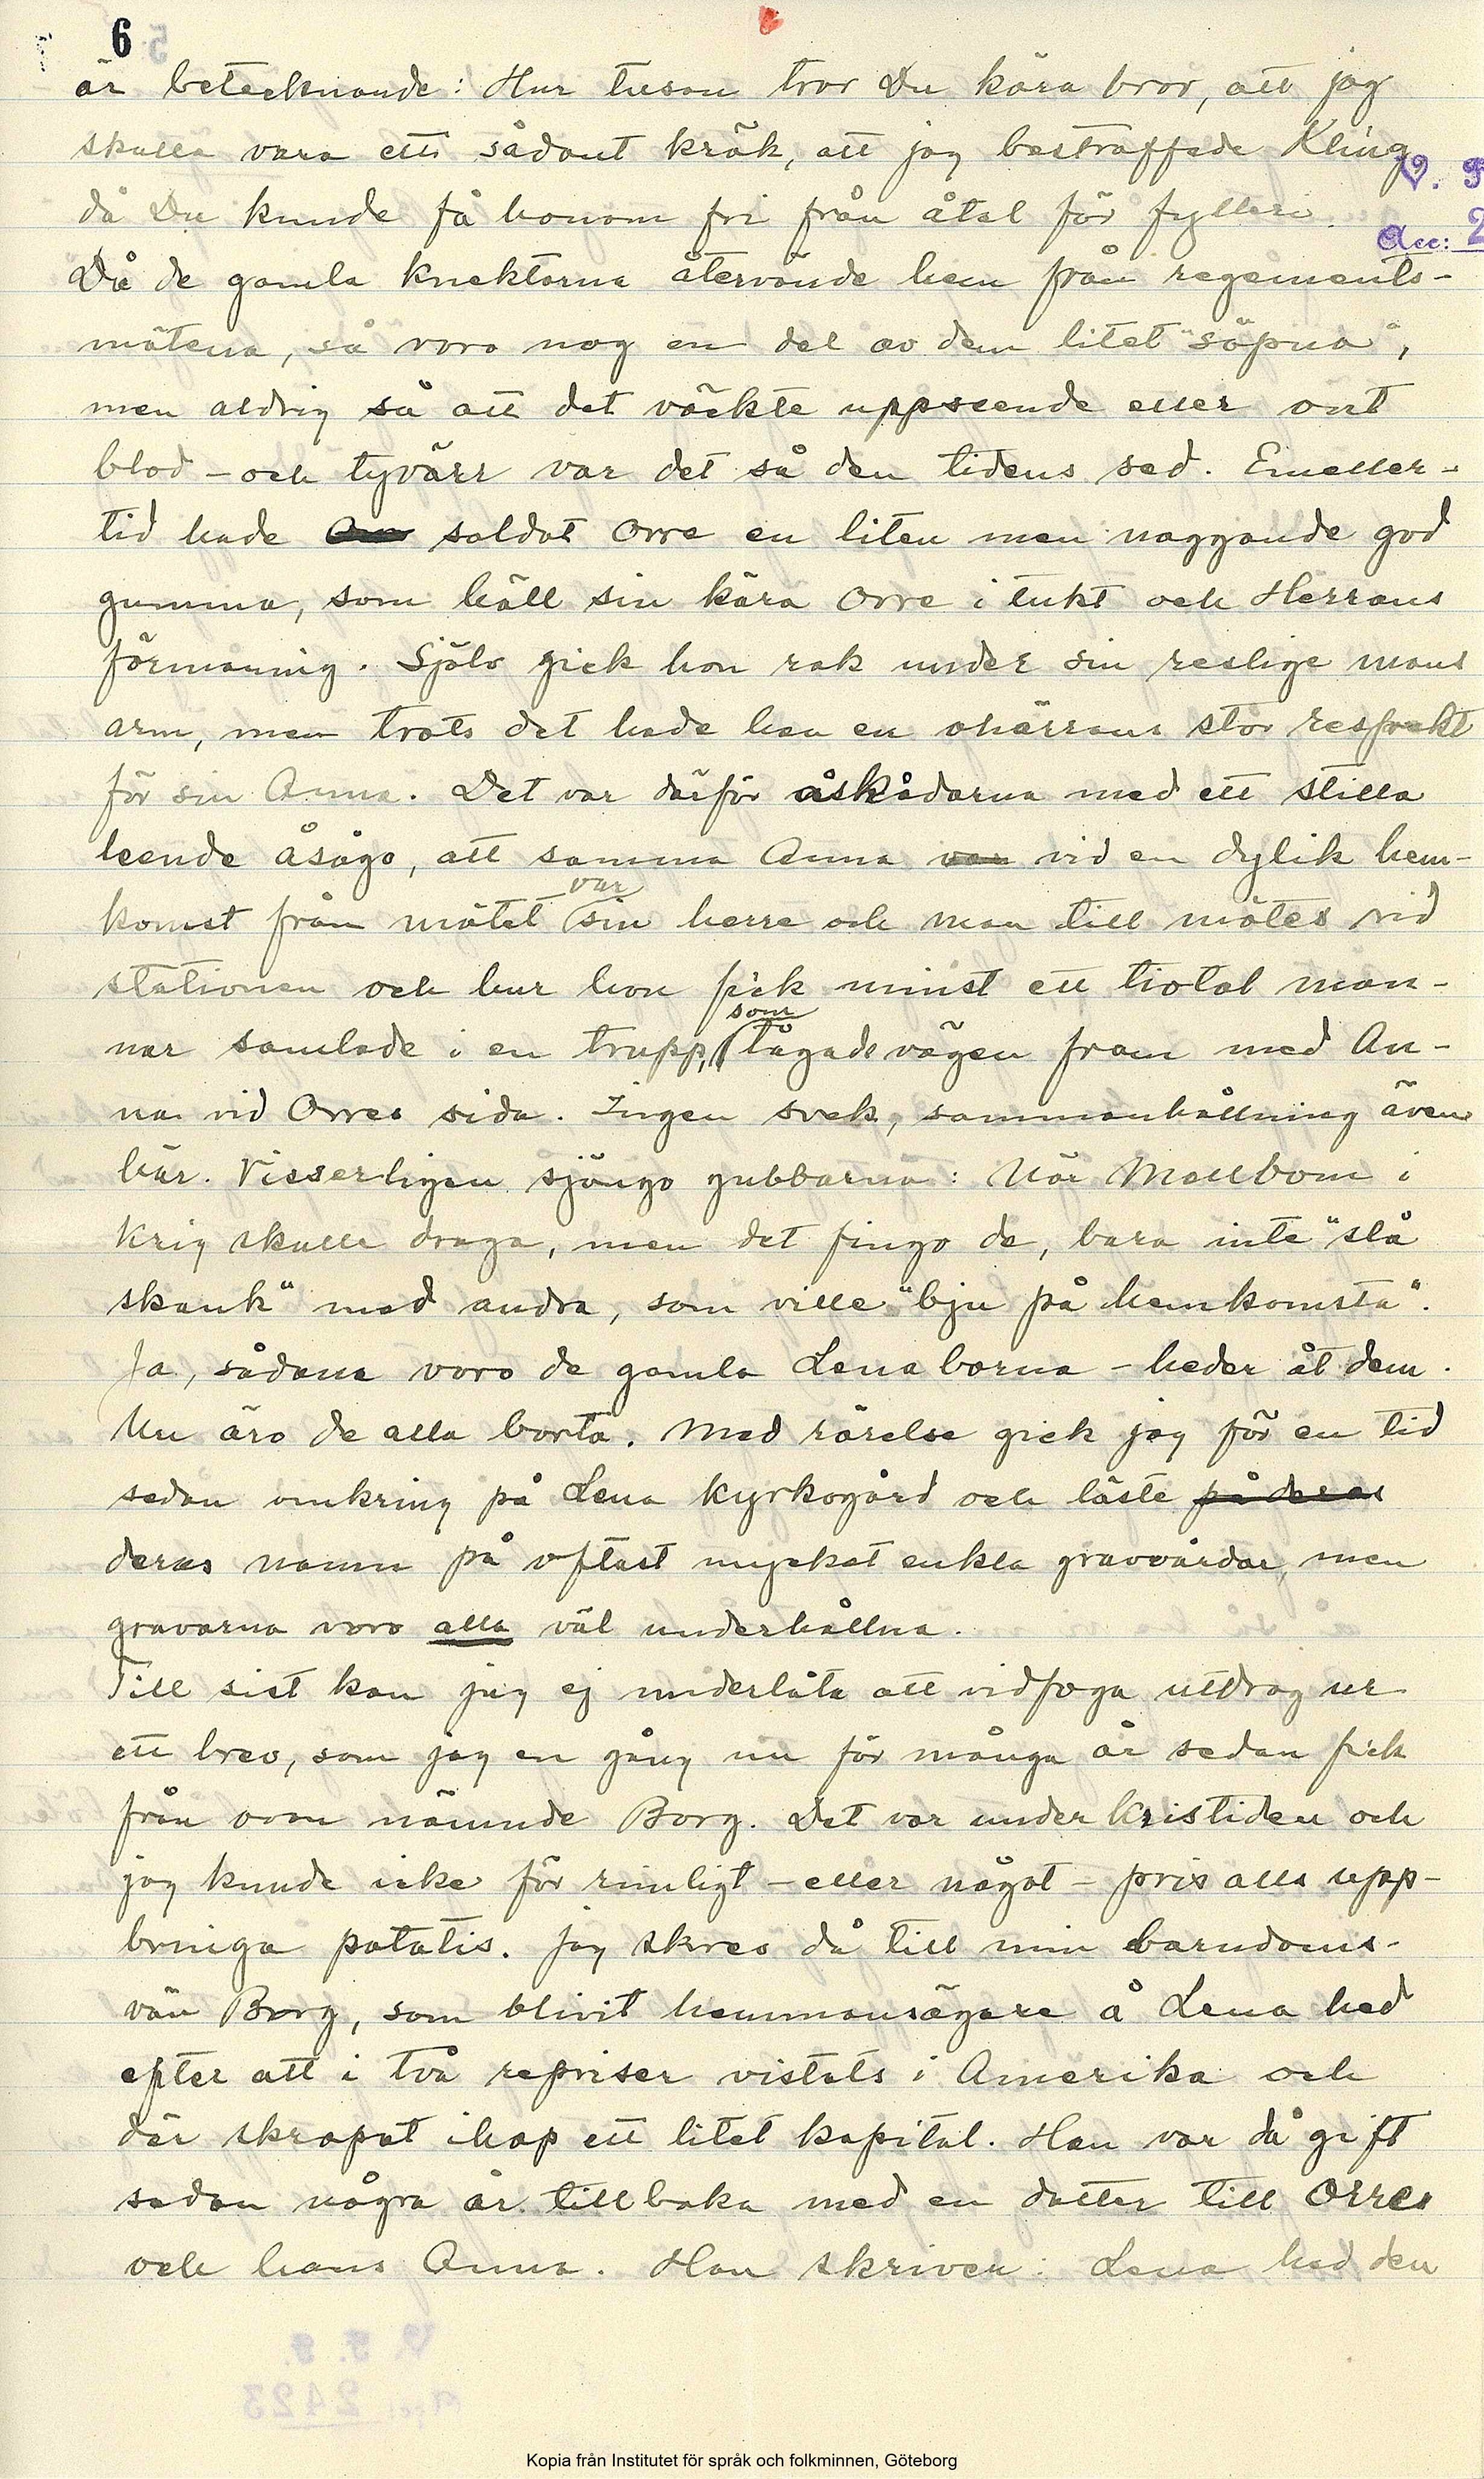 6
är betecknande: Hur tusan tror Du kära bror, att jag
skulle vara ett sådant kräk, att jag bestraffade Kling
då Du kunde få honom fri från åtal för fylleri.
Då de gamla knektarna återvände hem från regements-
mötena, så voro nog en del av dem litet "söpna",
men aldrig så att det väckte uppseende eller ont
blod - och tyvärr var det så den tidens sed. Emeller-
tid hade soldat Orre en liten men naggande god
gumma, som höll sin kära Orre i tukt och Herrans
förmaning. Själv gick hon rak under sin reslige mans
arm, men trots det hade han en oherrans stor respekt
för sin Anna. Det var därför åskådarna med ett stilla
leende åsågo, att samma Anna var vid en dylik hem-
komst från mötet var sin herre och man till mötes vid
stationen och hur hon fick minst ett tiotal män-
nar samlade i en trupp, som tågade vägen fram med An-
na vid Orres sida. Ingen svek, sammanhållning även
här. Visserligen sjöngo gubbarna: När Mollbom i
krig skulle draga, men det fingo de, bara inte "slå
skank" med andra, som ville "bju på hemkomsta".
Ja, sådana voro de gamla Lenaborna - heder åt dem.
Nu äro de alla borta. Med rörelse gick jag för en tid
sedan omkring på Lena kyrkogård och läste på deras
deras namn på oftast mycket enkla gravvårdar, men
gravarna voro alla väl underhållna.
Till sist kan jag ej underlåta att vidfoga utdrag ur
ett brev, som jag en gång nu för många år sedan fick
från ovan nämnde Borg. Det var under kristiden och
jag kunde icke för rimligt - eller något - pris alls upp-
bringa potatis. Jag skrev då till min barndoms-
vän Borg, som blivit hemmansägare å Lena hed
efter att i två repriser vistats i Amerika och
där skrapat ihop ett litet kapital. Han var då gift
sedan några år tillbaka med en dotter till Orres
och hans Anna. Han skriver: Lena hed den
Kopia från Institutet för språk och folkminnen, Göteborg